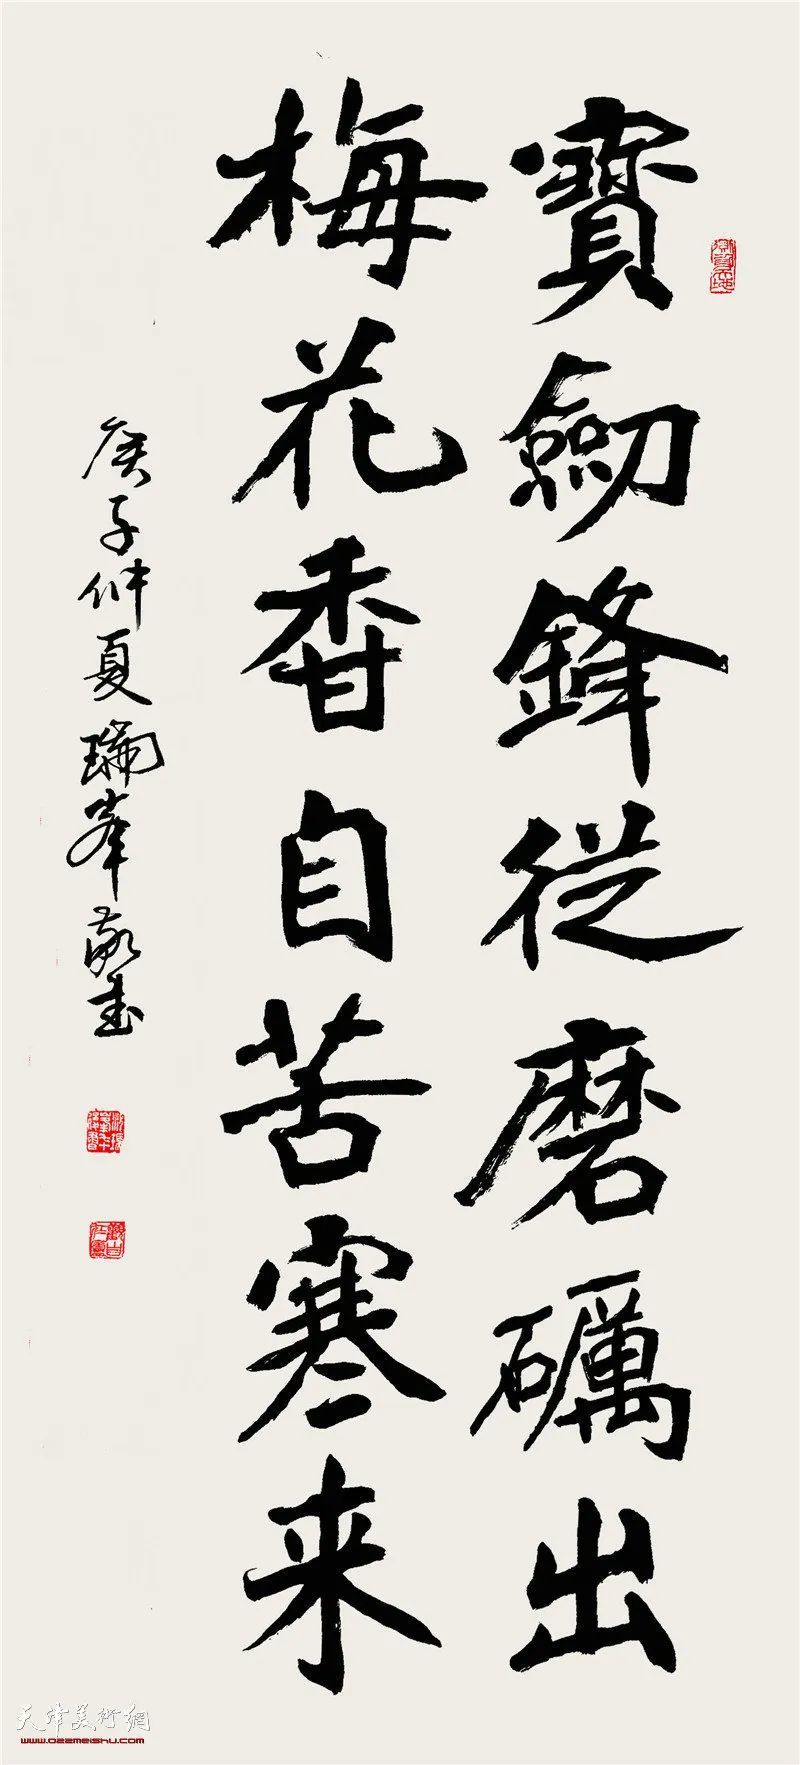 寳劒鋒從磨礪出
梅花香自苦寒来
庚子仲夏瑞峯敬書
天津美術網
www.022meishu.com